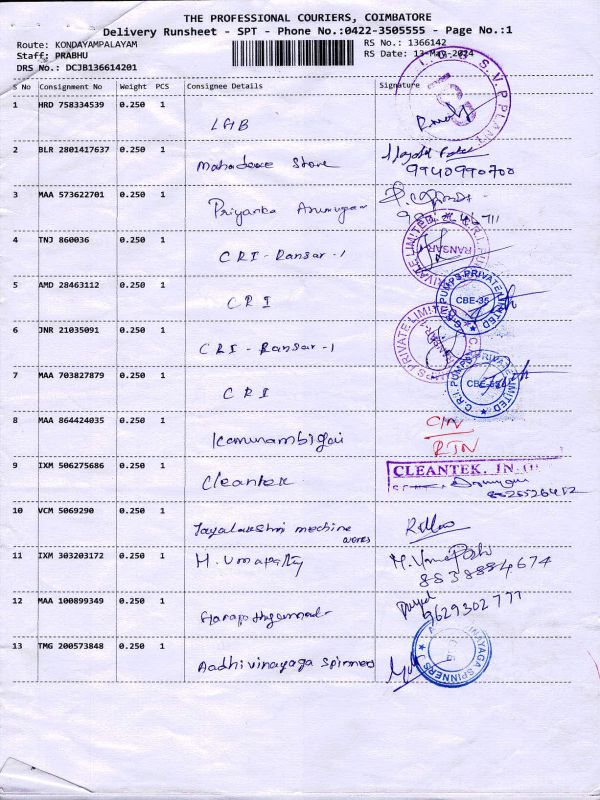 THE PROFESSIONAL COURIERS, COIMBATORE
Delivery Runsheet - SPT - Phone No.:0422-3505555 - Page No.:1
Route: KONDAYAMPALAYAM
RS No.: 1366142
Staff: PRABHU
RS Date: 13-May-2024
DRS No.: DCJB136614201
S No Consignment No Weight PCS Consignee Details Signature
1 HRD 758334539 0.250 1
LMB
2 BLR 2801417637 0.250 1
Store
9940990700
3 MAA 573622701 0.250 1
Priyanka Arumugam
4 TNJ 860036 0.250 1
CRI - Ransar - 1
RANSAR
5 AMD 28463112 0.250 1
CRI
C.R.I. PUMPS PRIVATE LIMITED
CBE-35
6 JNR 21035091 0.250 1
CRI - Ransar - 1
7 MAA 703827879 0.250 1
CRI
C.R.I. PUMPS PRIVATE LIMITED
8 MAA 864424035 0.250 1
Kamunambigai
C/N
RTN
9 IXM 506275686 0.250 1
Cleantek
CLEANTEK. IN
10 VCM 5069290 0.250 1
Jayalakshmi machine
works
11 IXM 303203172 0.250 1
M. Umapathy
8838884674
12 MAA 100899349 0.250 1
9629302777
13 TMG 200573848 0.250 1
Aadhivinayaga Spinners